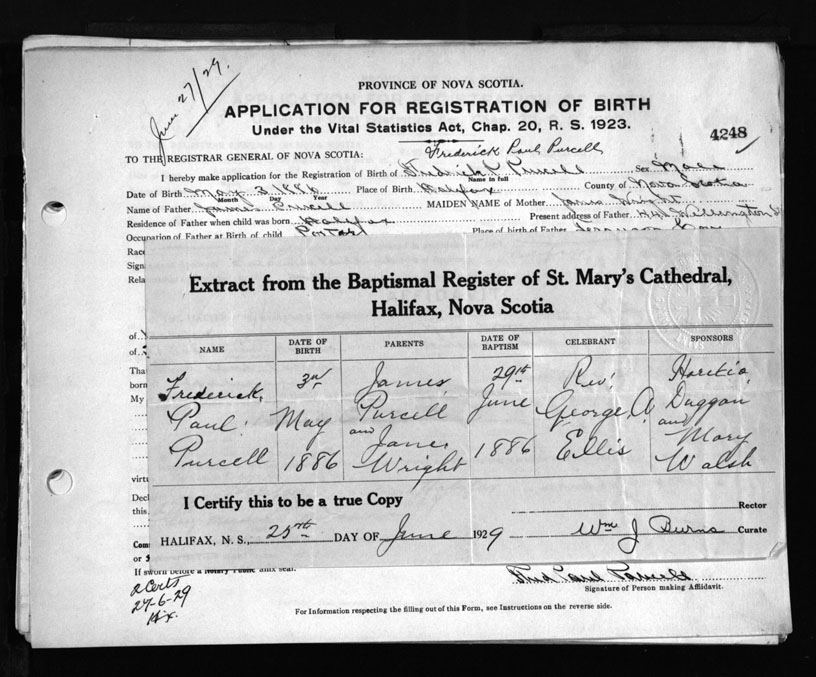 June 27/29.
PROVINCE OF NOVA SCOTIA.
APPLICATION FOR REGISTRATION OF BIRTH
Under the Vital Statistics Act, Chap. 20, R. S. 1923.
4248
Frederick Paul Purcell
TO THE REGISTRAR GENERAL OF NOVA SCOTIA:
I hereby make application for the Registration of Birth of Fredrick P Purcell Sex Male
Name in full
Date of Birth May 3 1886 Place of Birth Halifax County of Nova Scotia
Month Day Year
Name of Father James Purcell MAIDEN NAME of Mother Wright
Residence of Father when child was born Halifax Present address of Father Wellington St
Occupation of Father at Birth of child Porter Place of birth of Father Ferguson Cove
Race
Sign
Rela
Extract from the Baptismal Register of St. Mary's Cathedral,
Halifax, Nova Scotia
NAME DATE OF BIRTH PARENTS DATE OF BAPTISM CELEBRANT SPONSORS
Frederick 3rd James 29th Rev.
Paul May Purcell June George A. Duggan
and and
Purcell 1886 Jane Wright 1886 Ellis Mary Walsh
of
of
Tha
born
My
virtu
I Certify this to be a true Copy
Decl
this,
Rector
HALIFAX, N. S., 25th DAY OF June 1929 Wm J Burns Curate
Com
or
If sworn before a Notary Public affix seal.
Fred Paul Purcell
Signature of Person making Affidavit.
2 Certs
27-6-29
Hx.
For Information respecting the filling out of this Form, see Instructions on the reverse side.